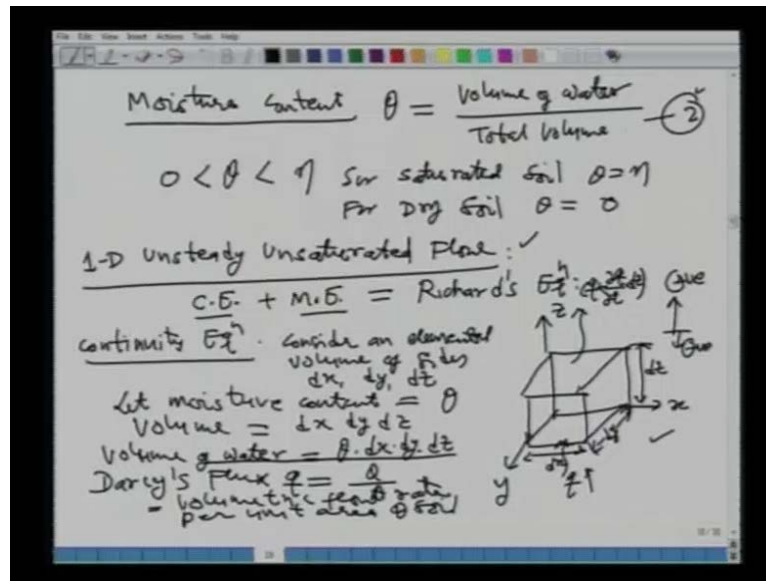 File Edit View Insert Actions Tools Help
Moisture Content θ = Volume of water / Total Volume — 2
0 < θ < η for saturated soil θ = η
For Dry soil θ = 0
1-D Unsteady Unsaturated Flow :
C.E. + M.E. = Richard's Eqn :
continuity Eqn. consider an elemental
volume of sides
dx, dy, dz
Let moisture content = θ
Volume = dx dy dz
Volume of water = θ.dx.dy.dz
Darcy's Flux q = Q
= Volumetric flow rate
per unit area of soil
z
⊕ve
⊖ve
dz
x
dy
dx
y
q↑